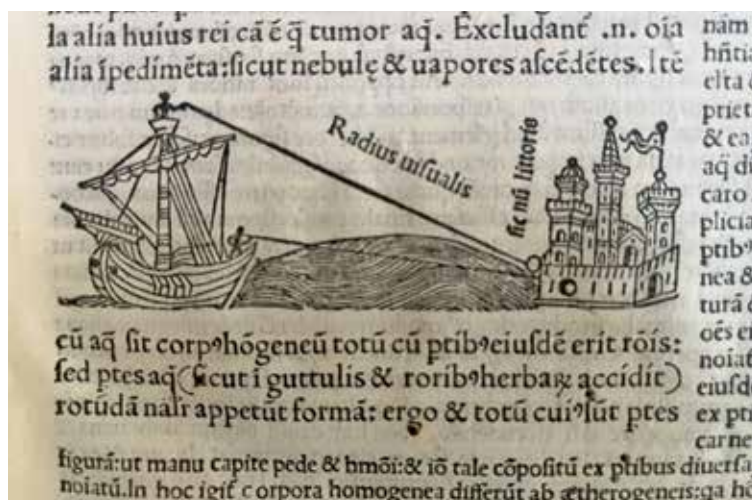 la alia huius rei cā ē q̄ tumor aq̄. Excludant᷑ .n. oīa
alia īpedimēta:sicut nebulę & uapores ascēdētes. Itē
Radius uisualis
signū littoris
cū aq̄ sit corpꝰ hōgeneū totū cū ptibꝰ eiusdē erit rōis:
sed ptes aq̄ (sicut ī guttulis & roribꝰ herbaꝝ accidit)
rotūdā nalr̄ appetūt formā: ergo & totū cuiꝰ sūt ptes
figurā:ut manu capite pede & hmōi:& iō tale cōpositū ex ptibus diuersa
noiatū.In hoc igit᷑ corpora homogenea differūt ab ætherogeneis:qa ho
nam
hn̄tia
priet
& ea
aq̄ di
caro
plicia
ptibꝰ
nea &
turā
oēs ei
noiat
eiusd
ex pt
carne